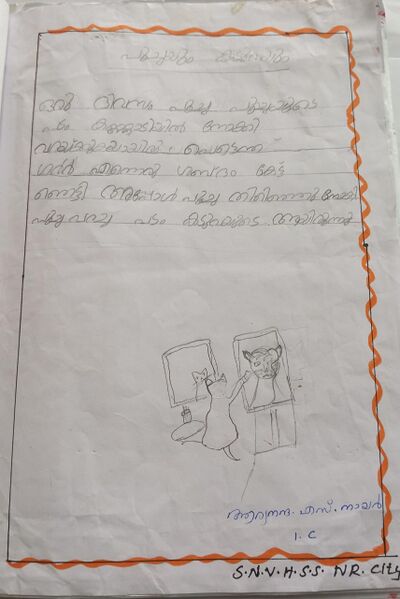 പൂച്ചയും കടുവയും
ഒരു ദിവസം പൂച്ച പൂച്ചയുടെ
പടം കണ്ണാടിയിൽ നോക്കി
വരയ്ക്കുകയായിരു പെട്ടെന്ന്
ഗർർ എന്നൊരു ശബ്ദം കേട്ട്
ഞെട്ടി അപ്പോൾ പൂച്ച തിരിഞ്ഞു നോക്കി
പൂച്ച വരച്ച പടം കടുവയുടെ ആയിരുന്നു
ആര്യനന്ദ. എസ്. നായർ
1. C
S.N.V.H.S.S. NR. City